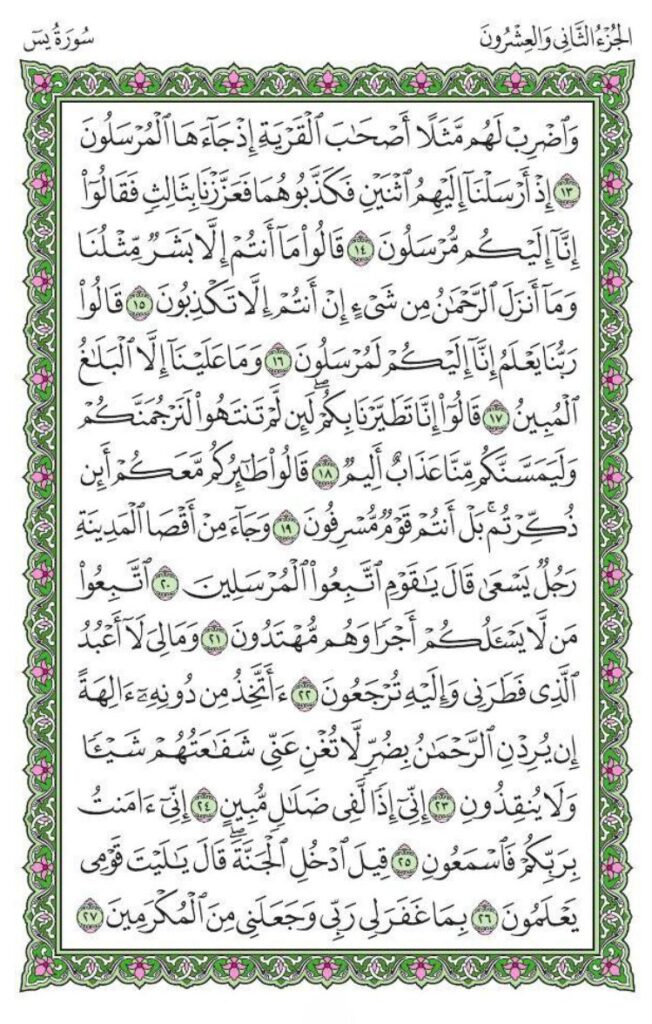 الجُزْءُ الثَّانِي وَالعِشْرُونَ
سُورَةُ يسٓ
وَٱضْرِبْ لَهُم مَّثَلًا أَصْحَٰبَ ٱلْقَرْيَةِ إِذْ جَآءَهَا ٱلْمُرْسَلُونَ
١٣ إِذْ أَرْسَلْنَآ إِلَيْهِمُ ٱثْنَيْنِ فَكَذَّبُوهُمَا فَعَزَّزْنَا بِثَالِثٍ فَقَالُوٓا۟
إِنَّآ إِلَيْكُم مُّرْسَلُونَ ١٤ قَالُوا۟ مَآ أَنتُمْ إِلَّا بَشَرٌ مِّثْلُنَا
وَمَآ أَنزَلَ ٱلرَّحْمَٰنُ مِن شَىْءٍ إِنْ أَنتُمْ إِلَّا تَكْذِبُونَ ١٥ قَالُوا۟
رَبُّنَا يَعْلَمُ إِنَّآ إِلَيْكُمْ لَمُرْسَلُونَ ١٦ وَمَا عَلَيْنَآ إِلَّا ٱلْبَلَٰغُ
ٱلْمُبِينُ ١٧ قَالُوٓا۟ إِنَّا تَطَيَّرْنَا بِكُمْ ۖ لَئِن لَّمْ تَنتَهُوا۟ لَنَرْجُمَنَّكُمْ
وَلَيَمَسَّنَّكُم مِّنَّا عَذَابٌ أَلِيمٌ ١٨ قَالُوا۟ طَٰٓئِرُكُم مَّعَكُمْ ۚ أَئِن
ذُكِّرْتُم ۚ بَلْ أَنتُمْ قَوْمٌ مُّسْرِفُونَ ١٩ وَجَآءَ مِنْ أَقْصَا ٱلْمَدِينَةِ
رَجُلٌ يَسْعَىٰ قَالَ يَٰقَوْمِ ٱتَّبِعُوا۟ ٱلْمُرْسَلِينَ ٢٠ ٱتَّبِعُوا۟
مَن لَّا يَسْـَٔلُكُمْ أَجْرًا وَهُم مُّهْتَدُونَ ٢١ وَمَا لِىَ لَآ أَعْبُدُ
ٱلَّذِى فَطَرَنِى وَإِلَيْهِ تُرْجَعُونَ ٢٢ ءَأَتَّخِذُ مِن دُونِهِۦٓ ءَالِهَةً
إِن يُرِدْنِ ٱلرَّحْمَٰنُ بِضُرٍّ لَّا تُغْنِ عَنِّى شَفَٰعَتُهُمْ شَيْـًٔا
وَلَا يُنقِذُونِ ٢٣ إِنِّىٓ إِذًا لَّفِى ضَلَٰلٍ مُّبِينٍ ٢٤ إِنِّىٓ ءَامَنتُ
بِرَبِّكُمْ فَٱسْمَعُونِ ٢٥ قِيلَ ٱدْخُلِ ٱلْجَنَّةَ ۖ قَالَ يَٰلَيْتَ قَوْمِى
يَعْلَمُونَ ٢٦ بِمَا غَفَرَ لِى رَبِّى وَجَعَلَنِى مِنَ ٱلْمُكْرَمِينَ ٢٧